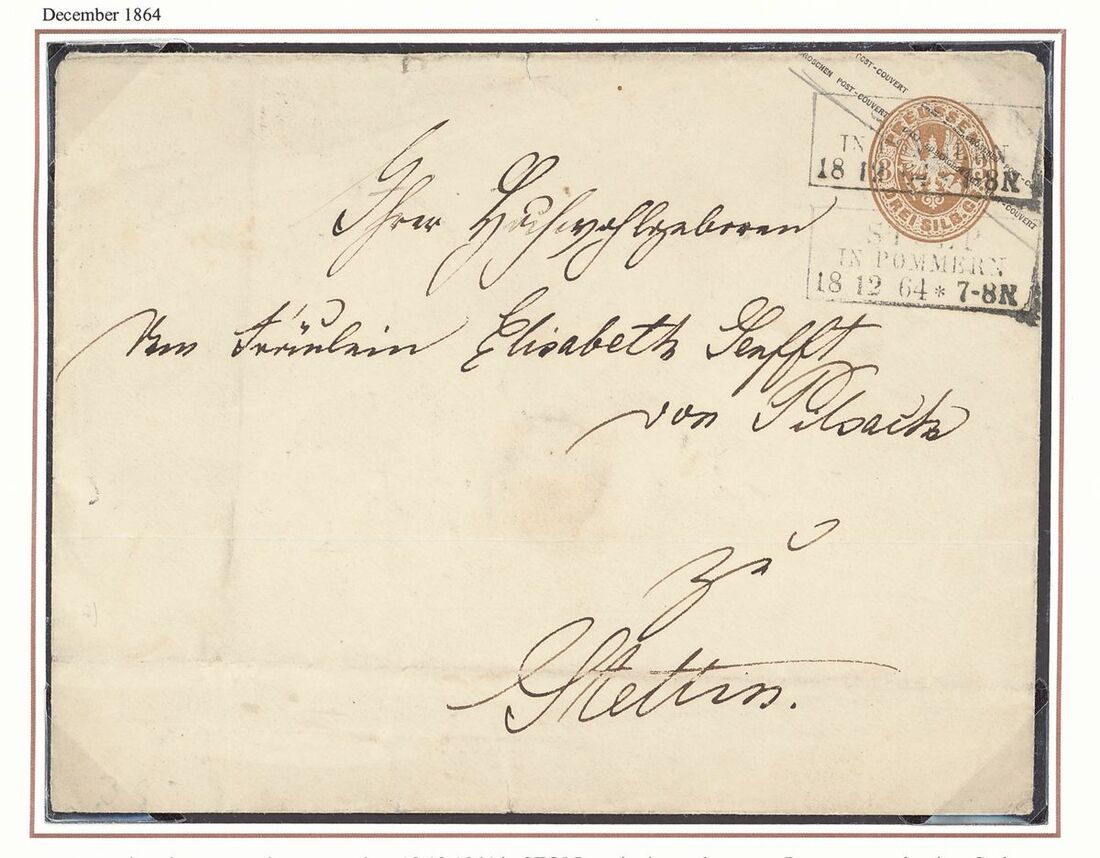 December 1864
GROSCHEN POST-COUVERT
POST-COUVERT
PREUSSEN
3
DREI SILB. GR.
IN
18 12 7-8N
IN POMMERN
18 12 64 * 7-8N
Ihrer Hochwohlgeboren
Fräulein Elisabeth Senfft
von Pilsach
zu
Stettin.